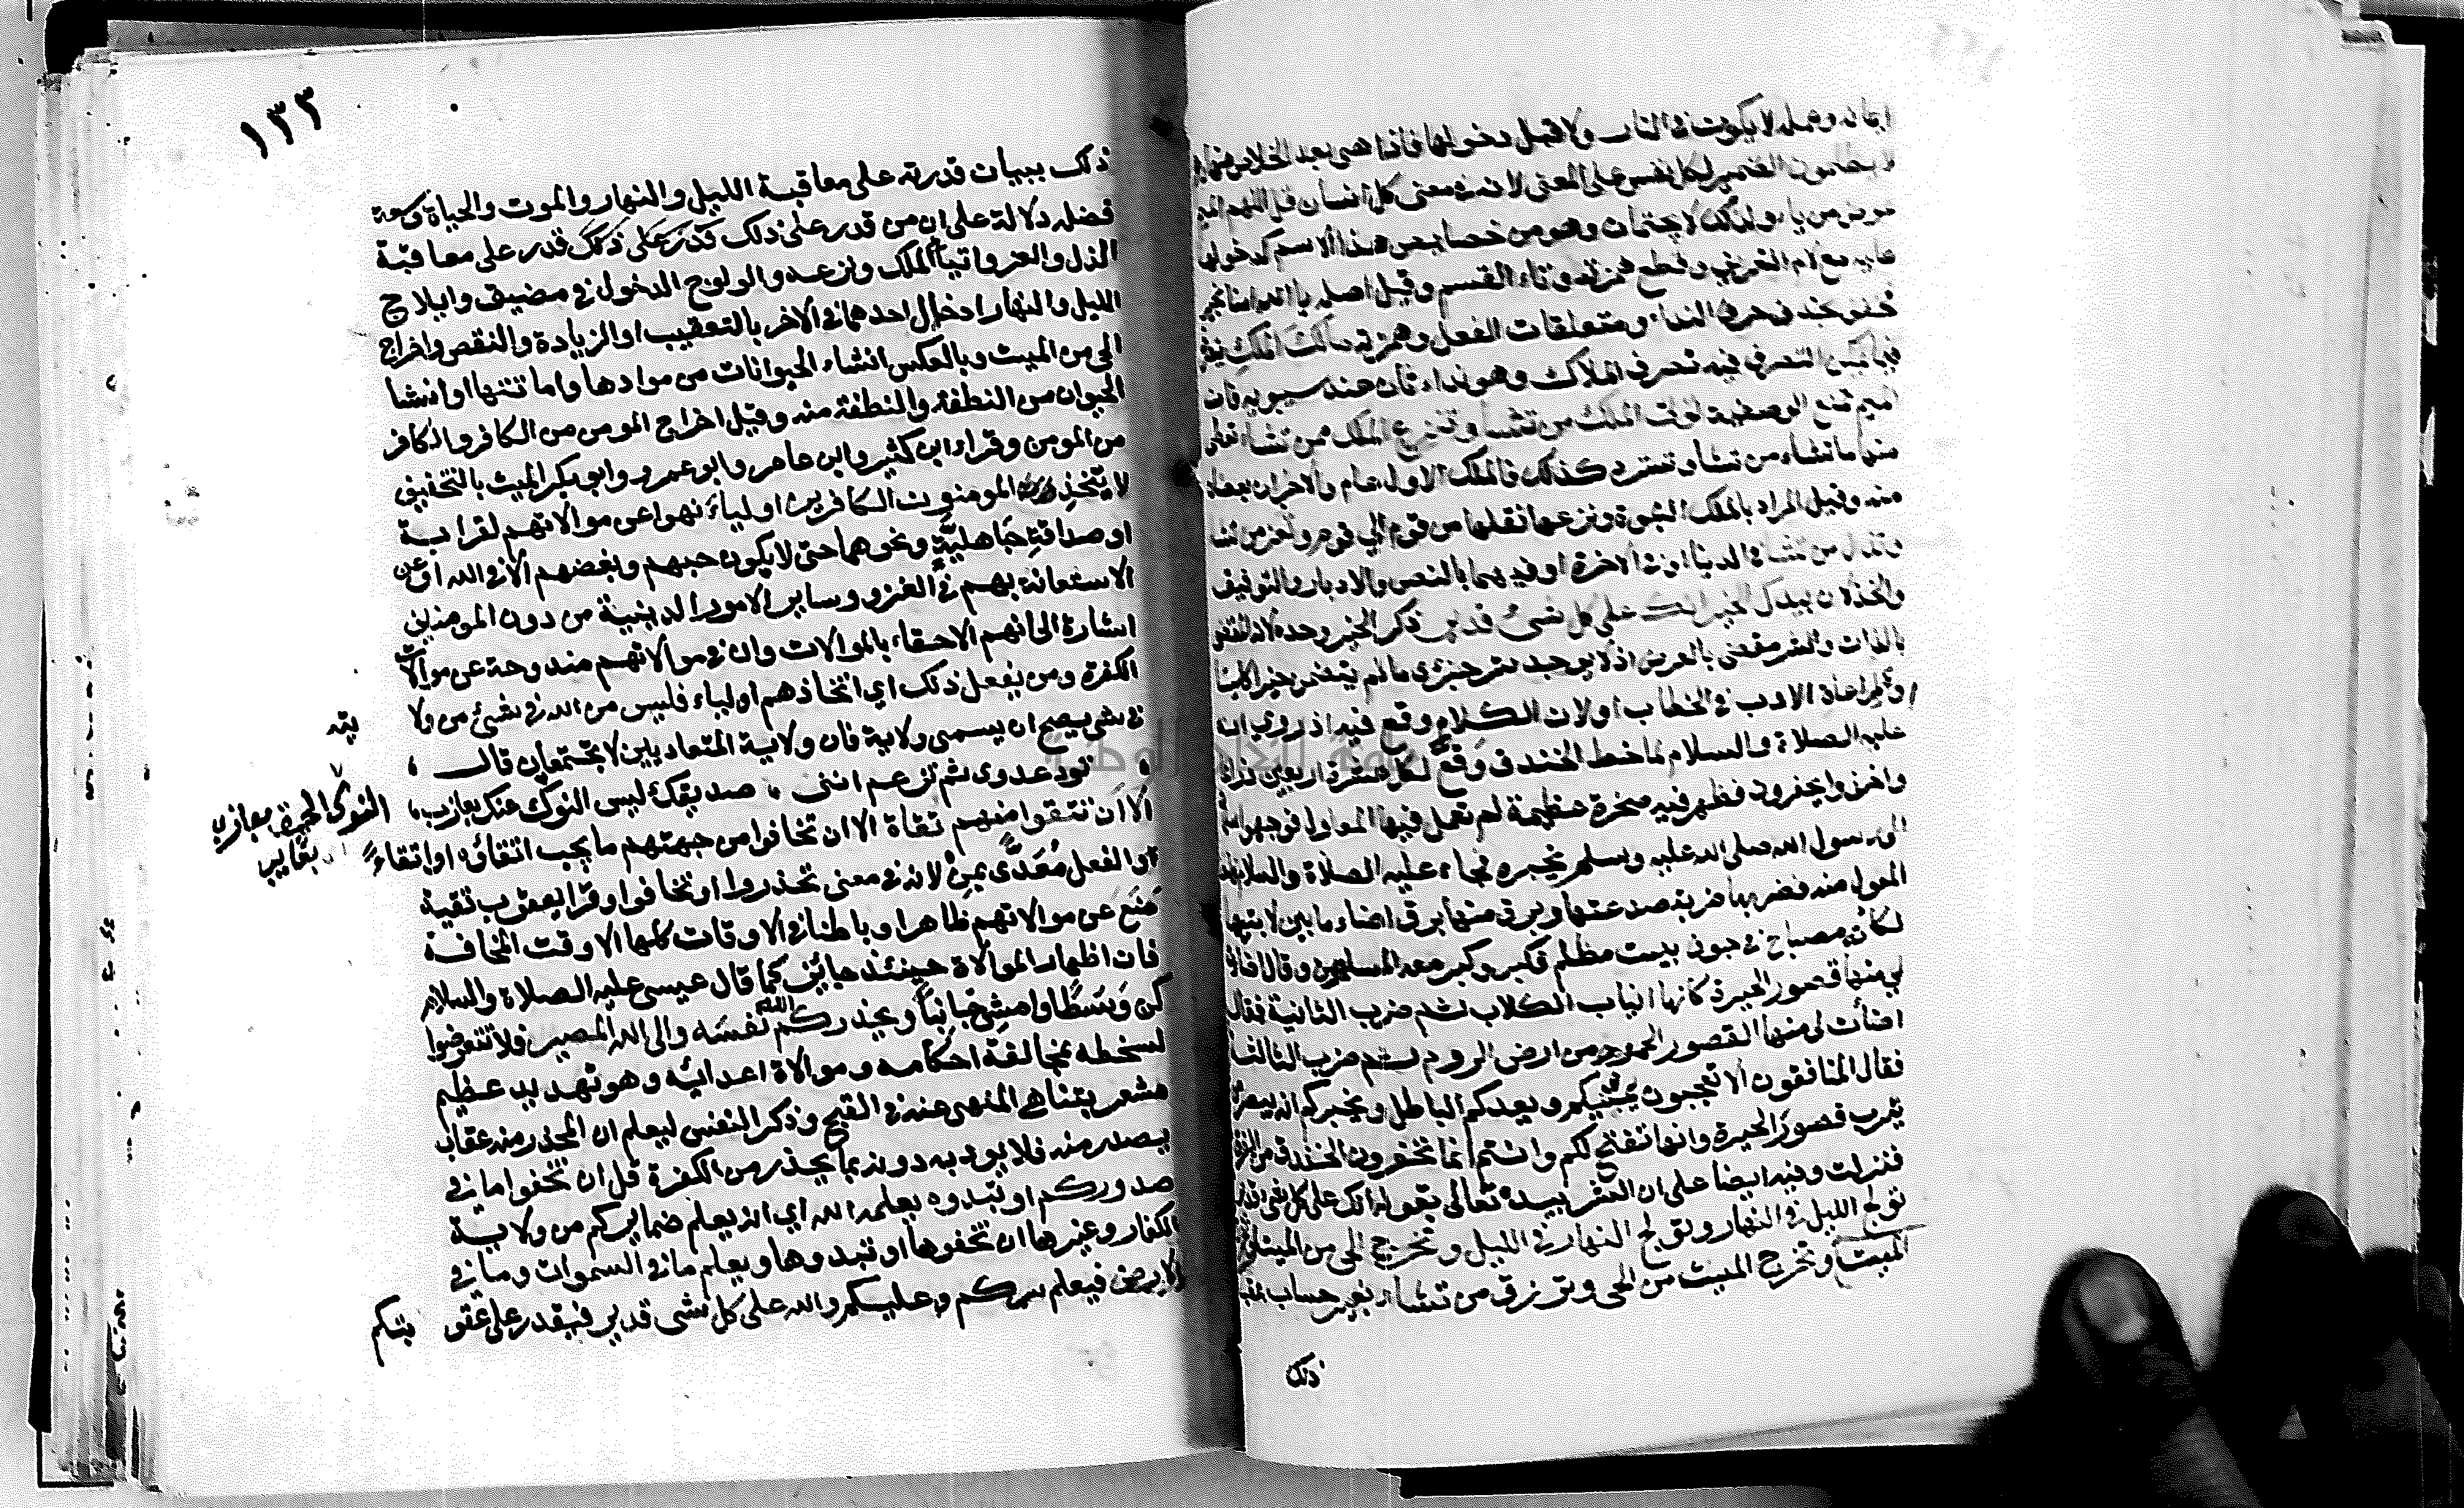 ايمانه وعمله لا يكون في النار ولا قبل دخولها فاذا هي بعد الخلاص منها وهم
لا يظلمون الضمير لكل نفس على المعنى لانه في معنى كل انسان قل اللهم الميم
عوض من يا ولذلك لا يجتمعان وهو من خصايص هذا الاسم كدخولها
عليه مع لام التعريف وقطع همزته وتاء القسم وقيل اصله يا الله امنا بخير
فخفف بحذف حرف النداء ومتعلقات الفعل وهمزته مالك الملك يتصرف
فيما يمكن التصرف فيه تصرف الملاك وهو نداء ثان عند سيبويه فان
الميم تمنع الوصفية توتي الملك من تشا وتنزع الملك ممن تشاء تعطي
منها ما تشاء من تشا وتسترد كذلك فالملك الاول عام والاخران بعضان
منه وقيل المراد بالملك النبوة ونزعها نقلها من قوم الي قوم وتعز من تشا
وتذل من تشاء في الدنيا او في الاخرة او فيهما بالنصر والادبار والتوفيق
والخذلان بيدك الخير انك على كل شئ قدير ذكر الخير وحده لانه المقضي
بالذات والشر مقضي بالعرض اذ لا يوجد شر جزئى ما لم يتضمن خيرا كليا
او لمراعاة الادب في الخطاب او لان الكلام وقع فيه اذ روي انه
عليه الصلاة والسلام لما خط الخندق وقطع لكل عشرة اربعين ذراعا
واخذوا يحفرون فظهر فيه صخرة عظيمة لم تعمل فيها المعاول فوجهوا سلمان
الى رسول الله صلى الله عليه وسلم يخبره فجاء عليه الصلاة والسلام فاخذ
المعول منه فضربها ضربة صدعتها وبرق منها برق اضاء ما بين لابتيها
لكان مصباح في جوف بيت مظلم فكبر وكبر معه المسلمون وقال اضات
لي منها قصور الحيرة كانها انياب الكلاب ثم ضرب الثانية فقال
اضأت لي منها القصور الحمر من ارض الروم ثم ضرب الثالثة
فقال المنافقون الا تعجبون يمنيكم ويعدكم الباطل ويخبركم انه يبصر من
يثرب قصور الحيرة وانها تفتح لكم وانتم انما تحفرون الخندق من الفرق
فنزلت وفيه ايضا على ان الشر بيده تعالى بقوله انك على كل شئ قدير
تولج الليل في النهار وتولج النهار في الليل وتخرج الحي من الميت
الميت وتخرج الميت من الحي وترزق من تشاء بغير حساب عقب
ذلك
١٣٣
ذلك ببيان قدرته على معاقبة الليل والنهار والموت والحياة وسعة
فضله دلالة على ان من قدر على ذلك قدر على ذلك قدر على معاقبة
الذل والعز واتيا الملك ونزعه والولوج الدخول في مضيق وايلاج
الليل والنهار ادخال احدهما في الاخر بالتعقيب او الزيادة والنقص واخراج
الحي من الميت وبالعكس انشاء الحيوانات من موادها واماتتها او انشا
الحيوان من النطفة والنطفة منه وقيل اخراج المومن من الكافر والكافر
من المومن وقراء ابن كثير وابن عامر وابو عمرو وابو بكر الميت بالتخفيف
لا يتخذ المومنون الكافرين اولياء نهوا عن موالاتهم لقرابة
او صداقة جاهلية ونحوهما حتى لا يكون حبهم وبغضهم الا في الله او عن
الاستعانة بهم في الغزو وساير الامور الدينية من دون المومنين
اشارة الى انهم الاحقاء بالموالات وان في موالاتهم مندوحة عن موالات
الكفرة ومن يفعل ذلك اي اتخاذهم اولياء فليس من الله في شئ من ولا
يته
في شي يصح ان يسمى ولاية فان ولاية المتعاديين لا يجتمعان قال
تود عدوى ثم تزعم اننى ، صديقك ليس النوك عنك بعازب ،
النوك الحيرة بعازب
بغايب
الا ان تتقوا منهم تقاة الا ان تخافوا من جهتهم ما يجب اتقاؤه او اتقاءً
او الفعل مُعَدًّى بمِن لانه في معنى تحذروا او تخافوا وقرا يعقوب تقية
مَنَعَ عن موالاتهم ظاهرا وباطنا في الاوقات كلها الا وقت المخافة
فان اظهار الموالاة حينئذ جائز كما قال عيسى عليه الصلاة والسلام
كن وَسَطًا وامشِ جانبًا ويحذركم الله نفسَه والى الله المصير فلا تتعرضوا
لسخطه بمخالفة احكامه وموالاة اعدائه وهو تهديد عظيم
مشعر بتناهي المنهى عنه في القبح وذكر النفس ليعلم ان المحذر منه عقاب
يصدر منه فلا يوبه دونه بما يحذر من الكفرة قل ان تخفوا ما في
صدوركم او تبدوه يعلمه الله اي انه يعلم ضمايركم من ولاية
الكفار وغيرها ان تخفوها او تبدوها ويعلم ما في السموات وما في
الارض فيعلم سركم وعلنكم والله على كل شى قدير فيقدر على عقو
بتكم